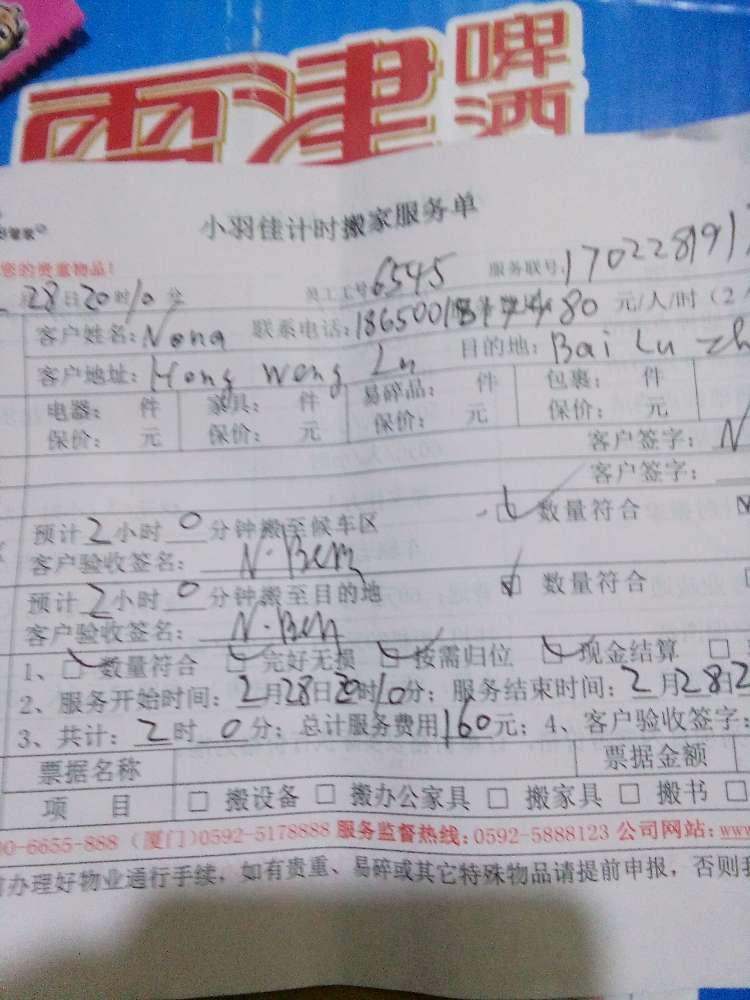 啤
酒
小羽佳计时搬家服务单
您的贵重物品!
28日20时10分 员工工号6545 服务联号:170228191
客户姓名:Nona 联系电话: 80元/人/时(2
客户地址:Hong Wong Lu 目的地:Bai Lu zh
电器: 件 家具: 件 易碎品: 件 包裹: 件
保价: 元 保价: 元 保价: 元 保价: 元
客户签字:N
客户签字:
预计2小时0分钟搬至候车区 数量符合
客户验收签名:
预计2小时0分钟搬至目的地 数量符合
客户验收签名:
1、□数量符合 □完好无损 □按需归位 □现金结算 □
2、服务开始时间:2月28日20时10分;服务结束时间:2月28日2
3、共计:2时0分;总计服务费用160元;4、客户验收签字:
票据名称 票据金额
项 目 □搬设备 □搬办公家具 □搬家具 □搬书 □
00-6655-888(厦门)0592-5178888 服务监督热线:0592-5888123 公司网站:www
办理好物业通行手续,如有贵重、易碎或其它特殊物品请提前申报,否则